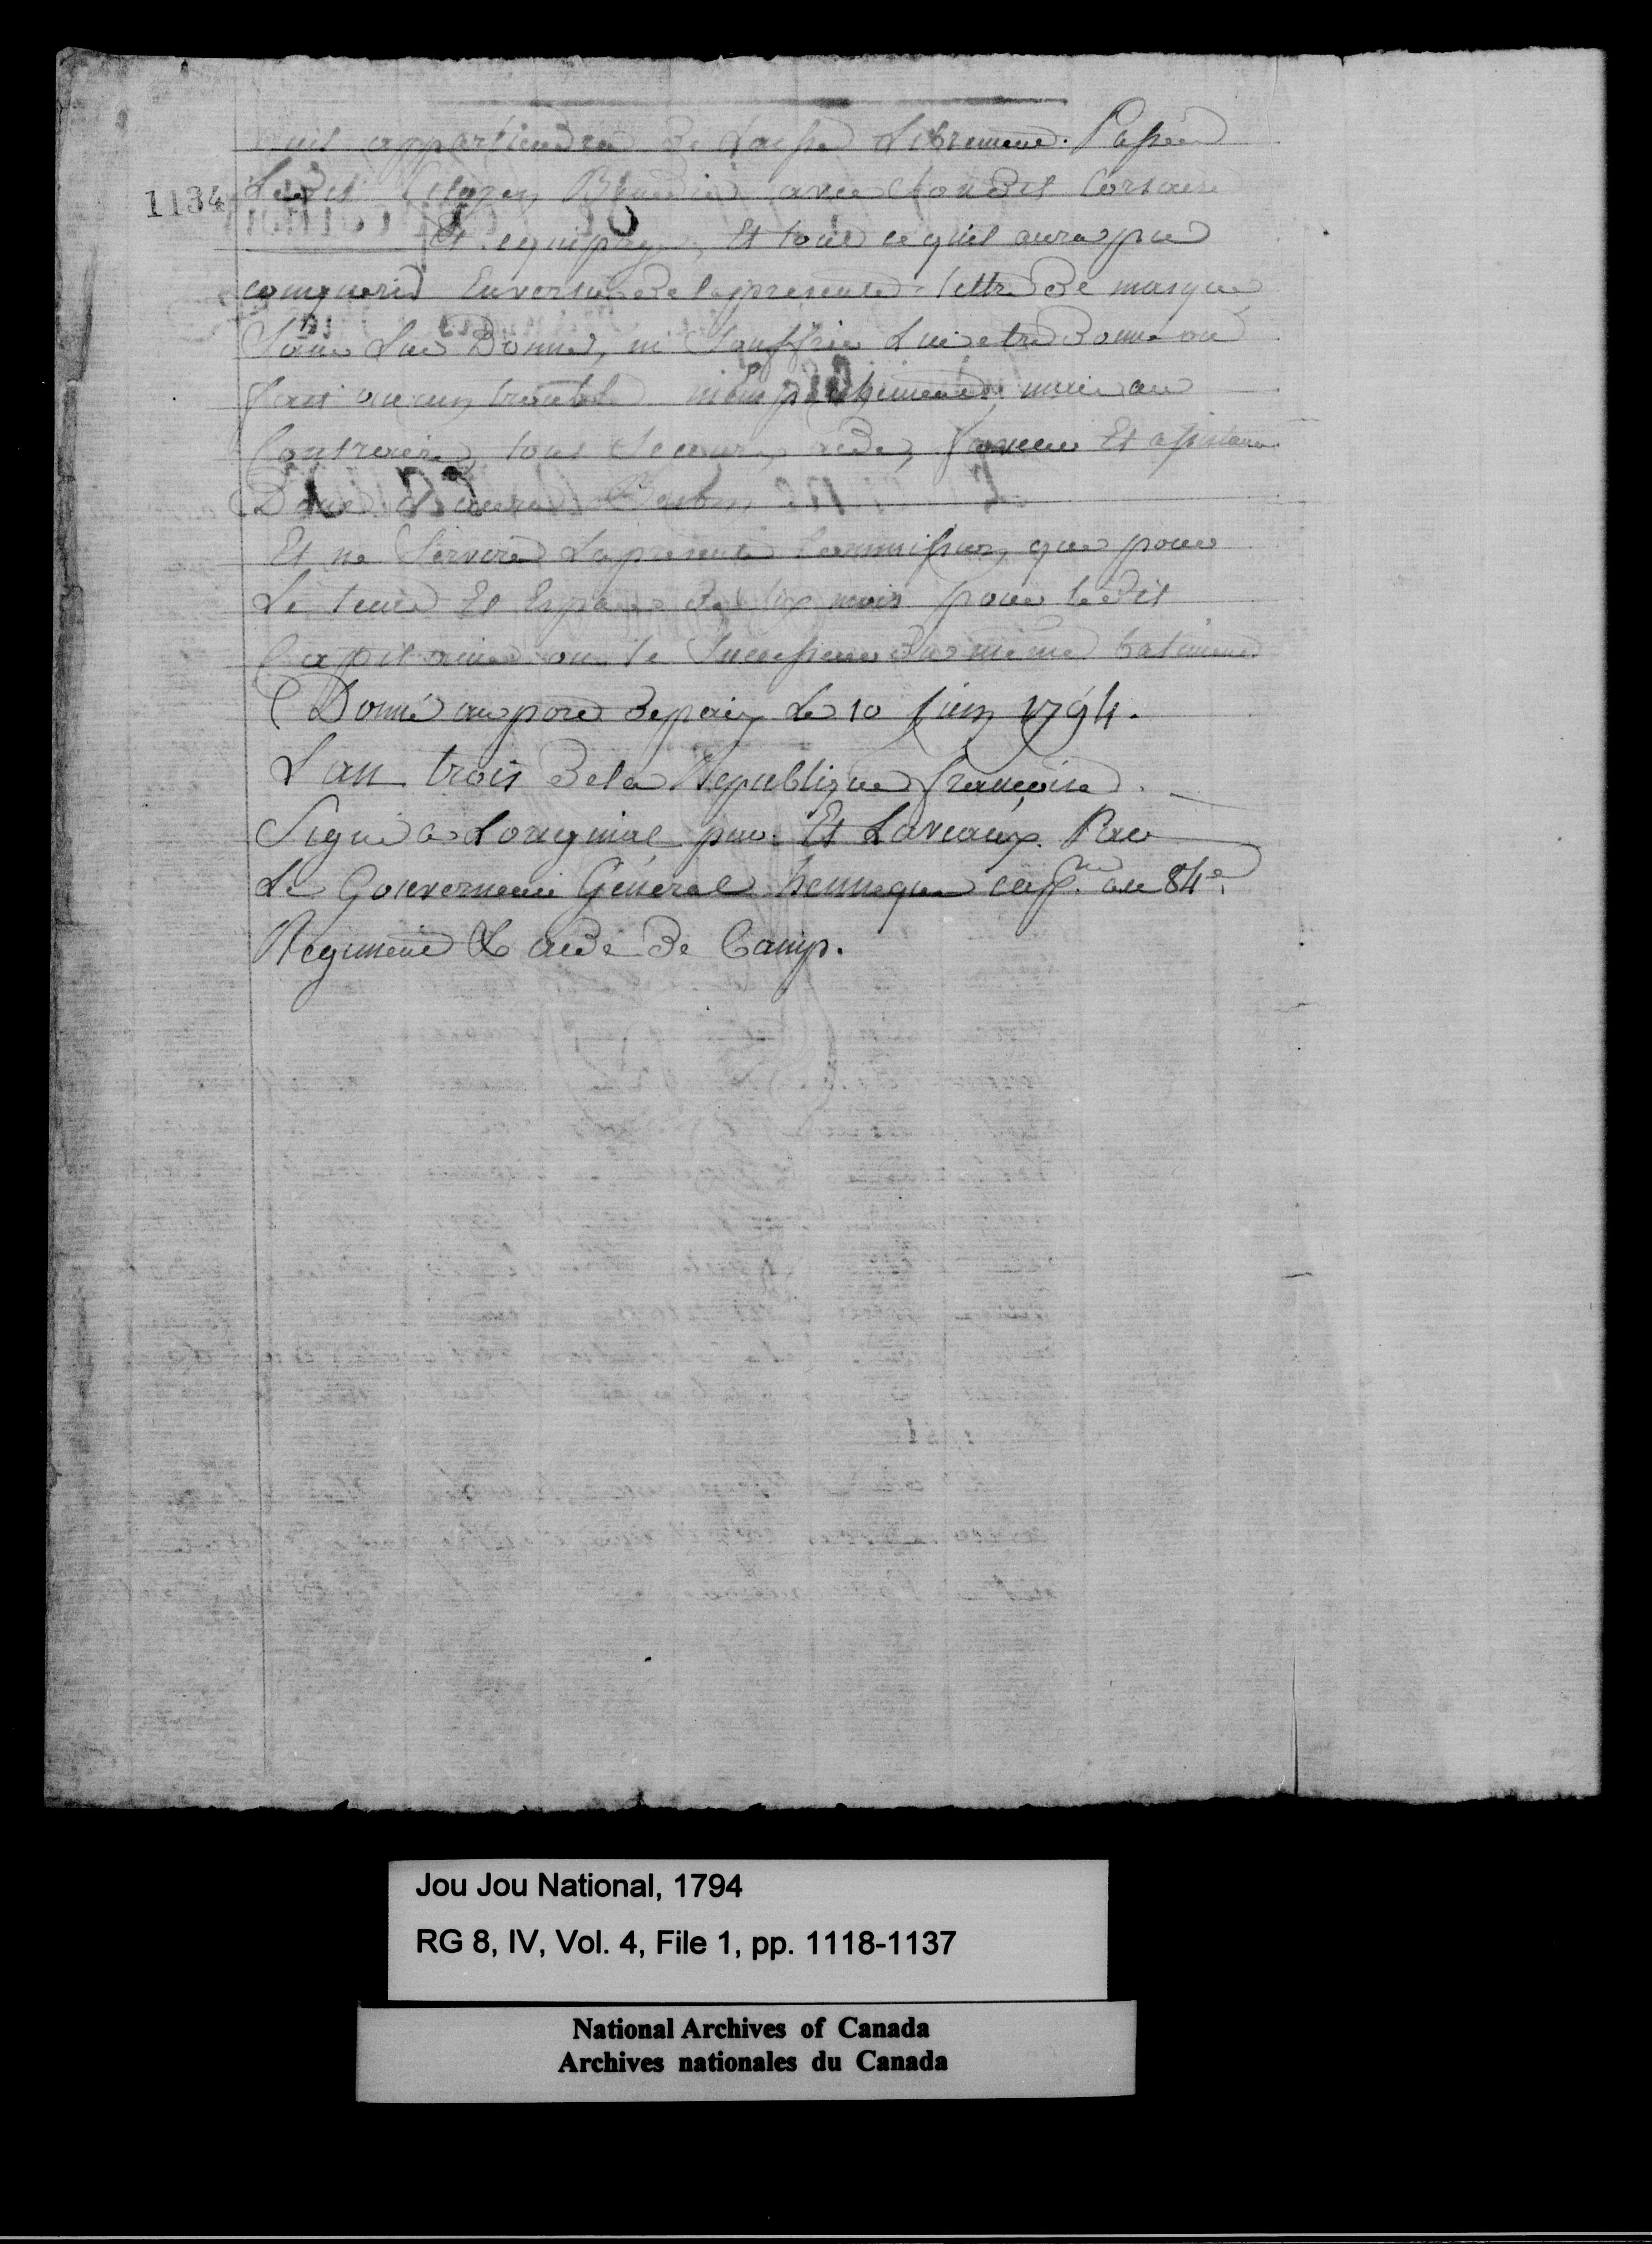 quil appartiendra de Laisser Librement. Passer
Ledit Citoyen avec Son dit Corsaire
1134
Et equipage, Et tout ce quil aura pu
conquerir En vertu de la presente lettre de marque
Sans Lui Donner, ni Souffrir Lui etre Donné ou
fait aucun trouble ni empechement, mais au
Contraire, tous Secours, aide, faveur Et assistance
Dont il aura Besoin,
Et ne Servira La presente Commission, que pour
Le tems Et Espace de six mois pour le dit
Capitaine ou le Successeur du même batiment
Donné au port de paix Le 10 juin 1794.
L'an trois de la Republique françoise.
Signé a Loriginal par Et Laveaux. Par
Le Gouverneur Général hennequin capne. au 84e.
Regiment & aide de Camp.
Jou Jou National, 1794
RG 8, IV, Vol. 4, File 1, pp. 1118-1137
National Archives of Canada
Archives nationales du Canada